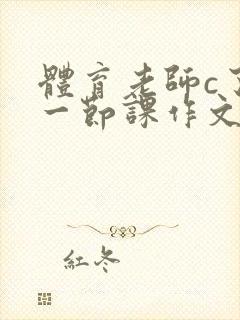 體育老師c
一節課作文
紅冬